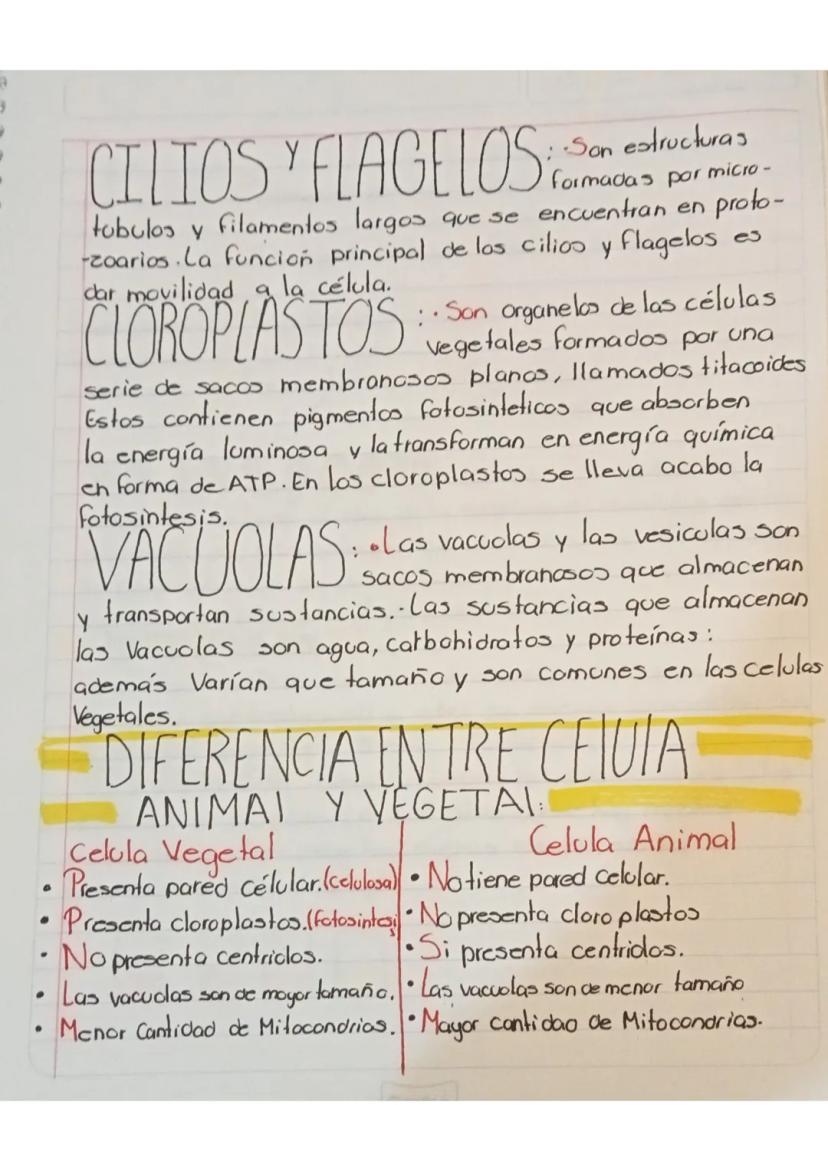 CILIOS Y FLAGELOS: · Son estructuras
formadas por micro-
tubulos y filamentos largos que se encuentran en proto-
-zoarios. La función principal de los cilios y flagelos es
dar movilidad a la célula.
CLOROPLASTOS: · Son organelos de las células
vegetales formados por una
serie de sacos membranosos planos, llamados tilacoides
Estos contienen pigmentos fotosinteticos que absorben
la energía luminosa y la transforman en energía química
en forma de ATP. En los cloroplastos se lleva acabo la
fotosintesis.
VACUOLAS: • Las vacuolas y las vesiculas son
sacos membranosos que almacenan
y transportan sustancias. · Las sustancias que almacenan
las Vacuolas son agua, carbohidratos y proteínas:
además Varían que tamaño y son comunes en las celulas
Vegetales.
DIFERENCIA ENTRE CElUlA
ANIMAl Y VEGETAl:
Celula Vegetal
• Presenta pared célular. (celulosa)
• Presenta cloroplastos. (fotosintesi
• No presenta centriolos.
• Las vacuolas son de mayor tamaño.
• Menor Cantidad de Mitocondrias.
Celula Animal
• No tiene pared celular.
• No presenta cloroplastos
• Si presenta centriolos.
• Las vacuolas son de menor tamaño
• Mayor cantidad de Mitocondrias.